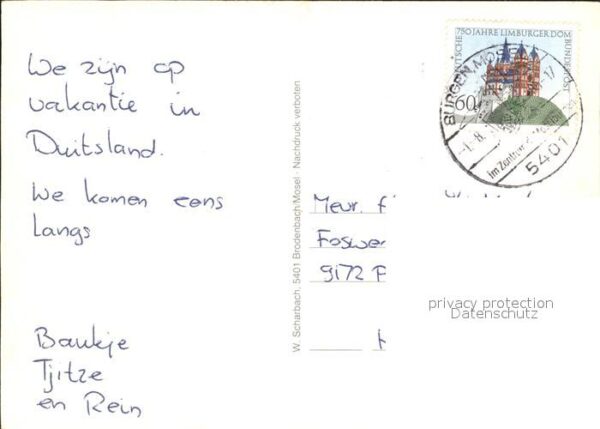 We zijn op
vakantie in
Duitsland.
We komen eens
langs
Baukje
Tjitze
en Rein
W. Scharbach, 5401 Brodenbach/Mosel · Nachdruck verboten
750 JAHRE LIMBURGER DOM
DEUTSCHE BUNDESPOST
60
BURGEN, MOSEL
-1.-8.
17
Im Zentrum
5401
Meur.
9172
privacy protection
Datenschutz